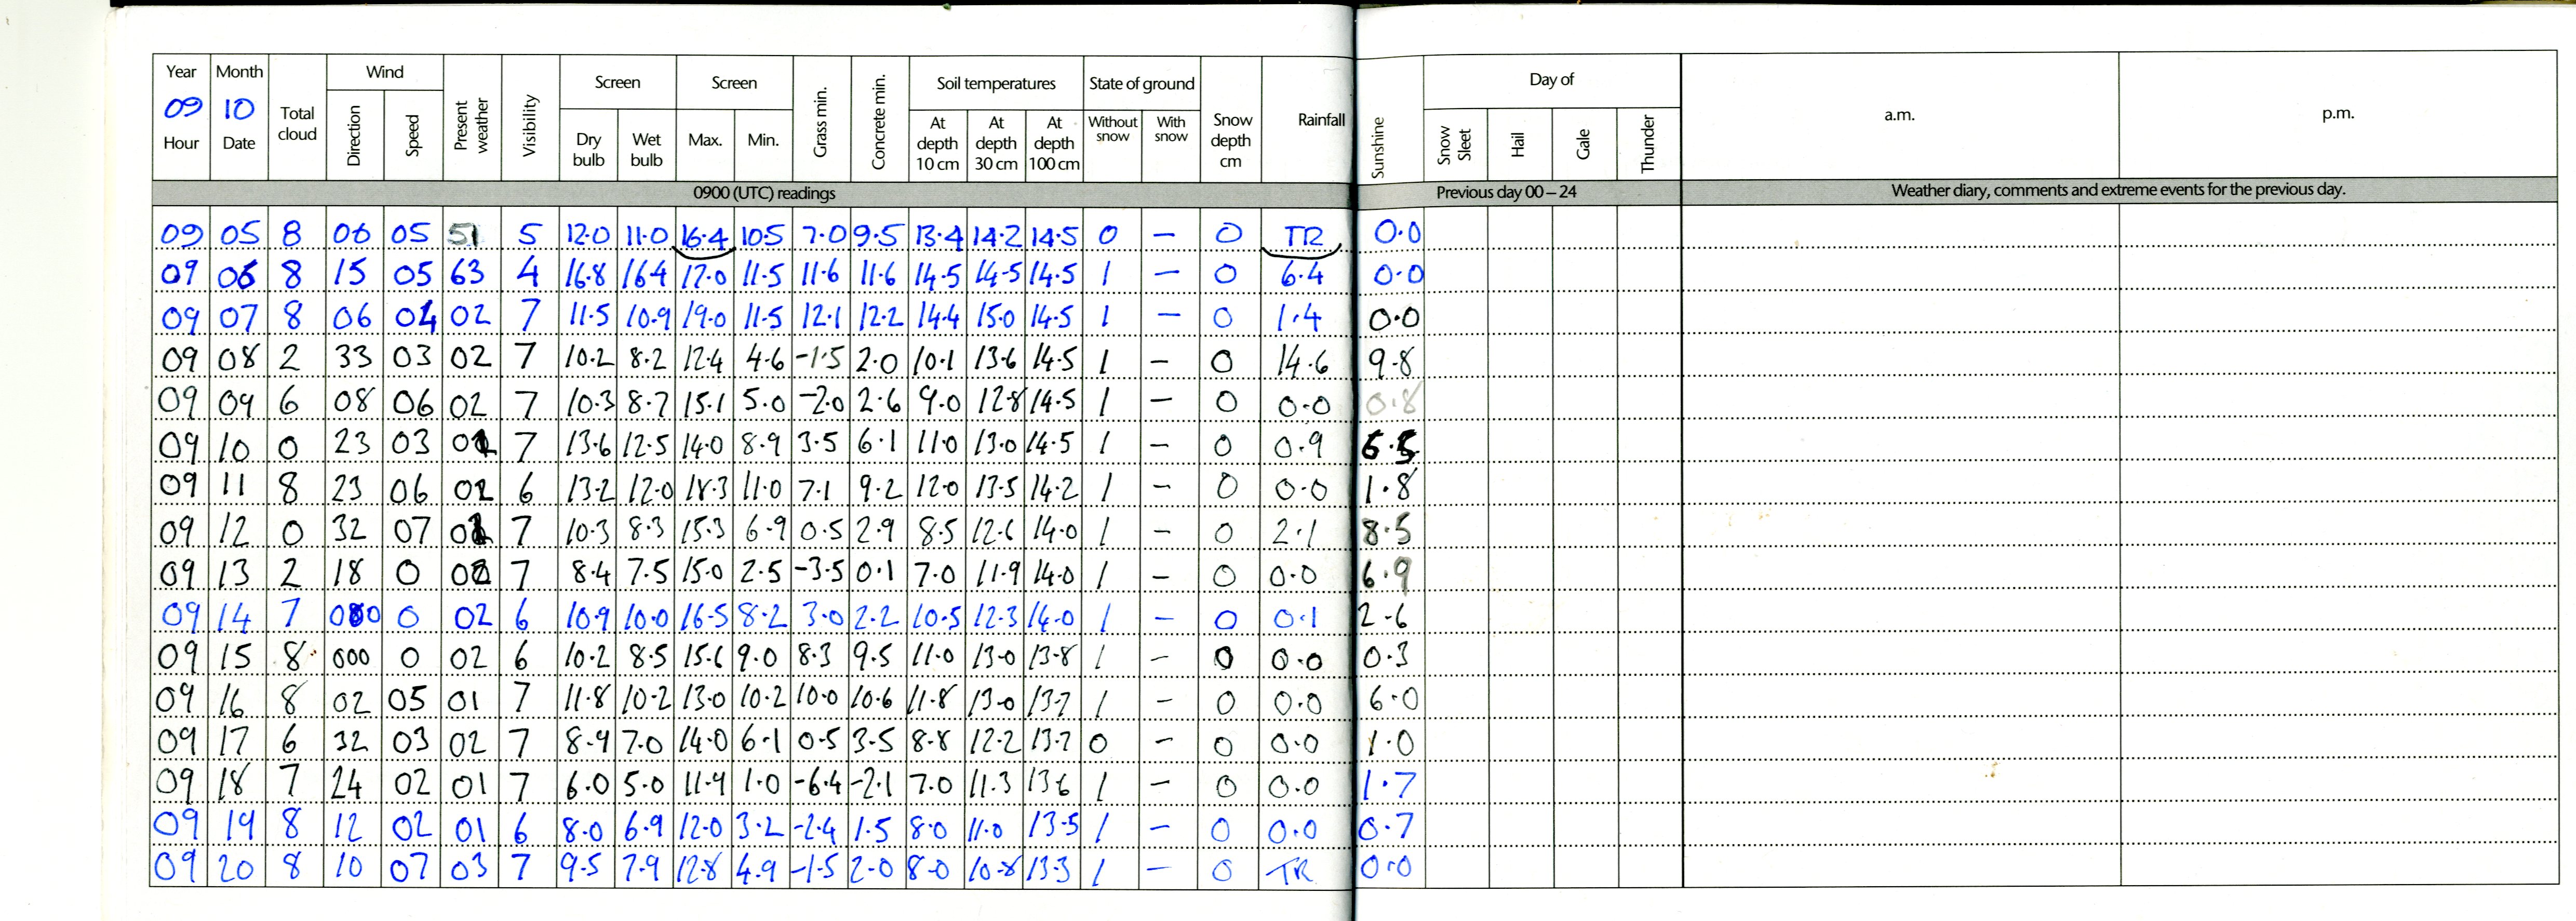 Year Month Total cloud Wind Present weather Visibility Screen Screen Grass min. Concrete min. Soil temperatures State of ground Snow depth cm Rainfall Sunshine Day of a.m. p.m.
09 10
Hour Date Direction Speed Dry bulb Wet bulb Max. Min. At depth 10 cm At depth 30 cm At depth 100 cm Without snow With snow Snow Sleet Hail Gale Thunder
0900 (UTC) readings Previous day 00 – 24 Weather diary, comments and extreme events for the previous day.
09 05 8 06 05 51 5 12.0 11.0 16.4 10.5 7.0 9.5 13.4 14.2 14.5 0 – 0 TR 0.0
09 06 8 15 05 63 4 16.8 16.4 17.0 11.5 11.6 11.6 14.5 14.5 14.5 1 – 0 6.4 0.0
09 07 8 06 04 02 7 11.5 10.9 19.0 11.5 12.1 12.2 14.4 15.0 14.5 1 – 0 1.4 0.0
09 08 2 33 03 02 7 10.2 8.2 12.4 4.6 -1.5 2.0 10.1 13.6 14.5 1 – 0 14.6 9.8
09 09 6 08 06 02 7 10.3 8.7 15.1 5.0 -2.0 2.6 9.0 12.8 14.5 1 – 0 0.0 0.8
09 10 0 23 03 7 13.6 12.5 14.0 8.9 3.5 6.1 11.0 13.0 14.5 1 – 0 0.9
09 11 8 23 06 02 6 13.2 12.0 18.3 11.0 7.1 9.2 12.0 13.5 14.2 1 – 0 0.0 1.8
09 12 0 32 07 7 10.3 8.3 15.3 6.9 0.5 2.9 8.5 12.6 14.0 1 – 0 2.1 8.5
09 13 2 18 0 02 7 8.4 7.5 15.0 2.5 -3.5 0.1 7.0 11.9 14.0 1 – 0 0.0 6.9
09 14 7 000 0 02 6 10.9 10.0 16.5 8.2 3.0 2.2 10.5 12.3 14.0 1 – 0 0.1 2.6
09 15 8 000 0 02 6 10.2 8.5 15.6 9.0 8.3 9.5 11.0 13.0 13.8 1 – 0 0.0 0.3
09 16 8 02 05 01 7 11.8 10.2 13.0 10.2 10.0 10.6 11.8 13.0 13.7 1 – 0 0.0 6.0
09 17 6 32 03 02 7 8.9 7.0 14.0 6.1 0.5 3.5 8.8 12.2 13.7 0 – 0 0.0 1.0
09 18 7 24 02 01 7 6.0 5.0 11.9 1.0 -6.4 -2.1 7.0 11.3 13.6 1 – 0 0.0 1.7
09 19 8 12 02 01 6 8.0 6.9 12.0 3.2 -2.4 1.5 8.0 11.0 13.5 1 – 0 0.0 0.7
09 20 8 10 07 03 7 9.5 7.9 12.8 4.9 -1.5 2.0 8.0 10.8 13.3 1 – 0 TR 0.0